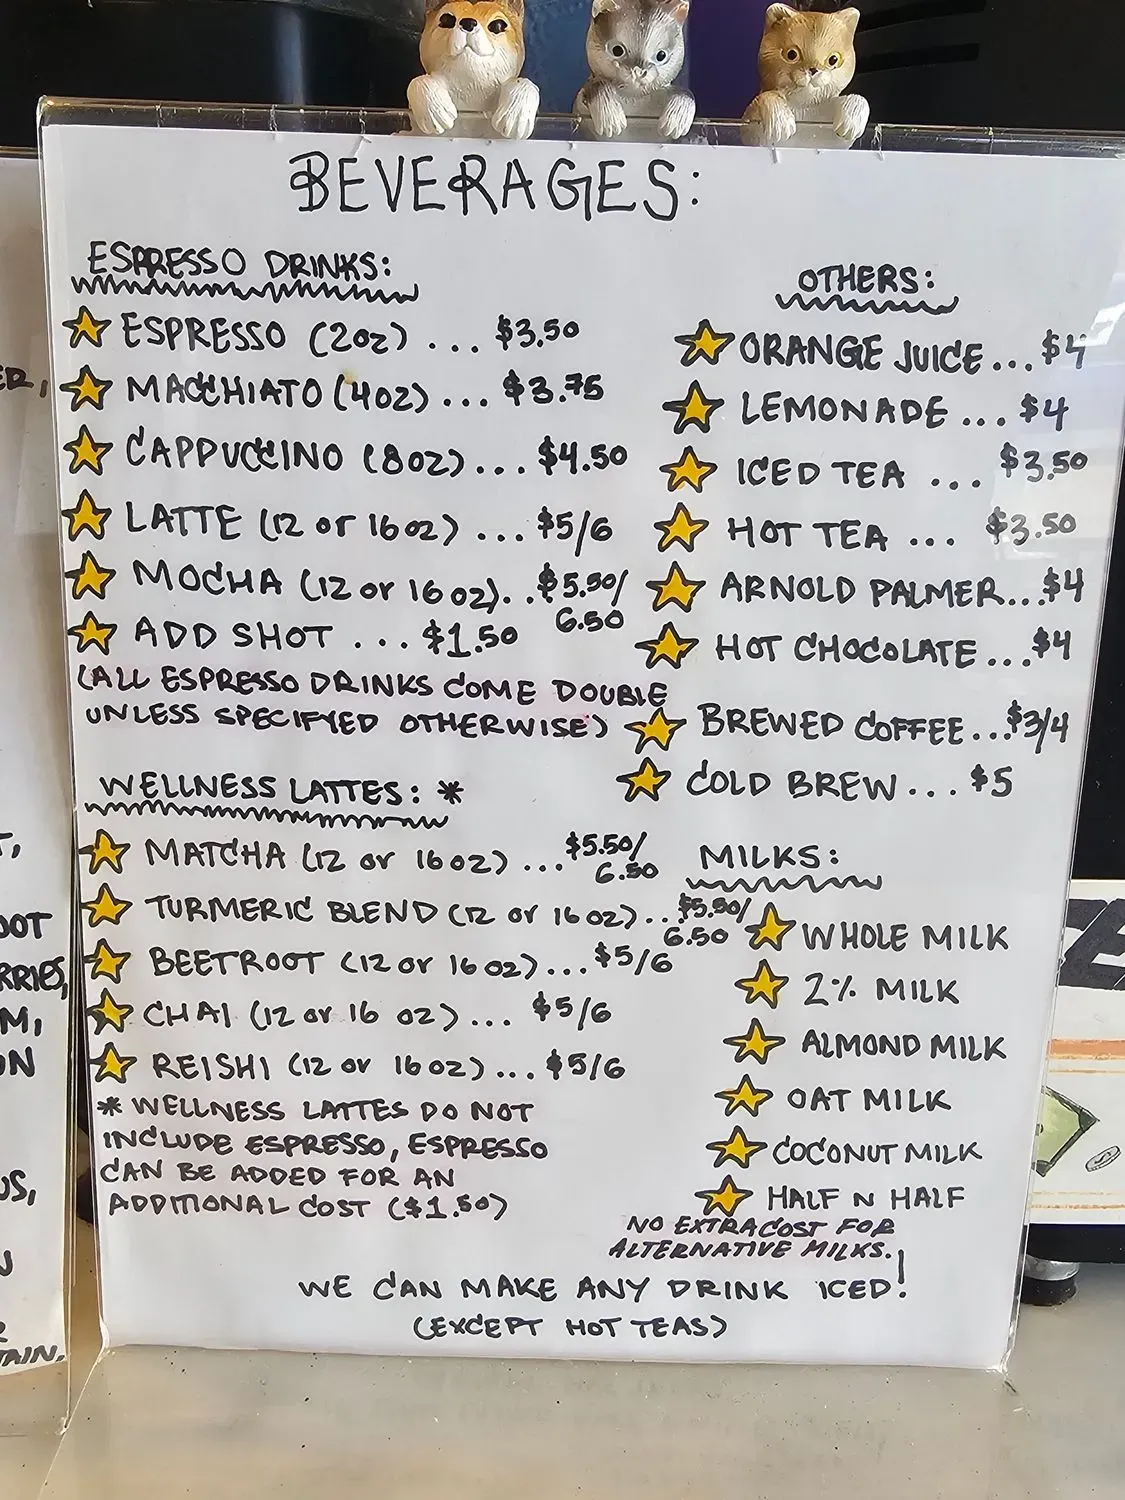 BEVERAGES:
ESPRESSO DRINKS:
ESPRESSO (2oz) ... $3.50
MACCHIATO (4oz) ... $3.75
CAPPUCCINO (8oz) ... $4.50
LATTE (12 or 16oz) ... $5/6
MOCHA (12 or 16oz)...$5.50/
6.50
ADD SHOT ... $1.50
(ALL ESPRESSO DRINKS COME DOUBLE
UNLESS SPECIFYED OTHERWISE)
WELLNESS LATTES: *
MATCHA (12 or 16oz) ...$5.50/
6.50
TURMERIC BLEND (12 or 16oz)...$5.50/
6.50
BEETROOT (12 or 16oz)...$5/6
CHAI (12 or 16 oz)... $5/6
REISHI (12 or 16oz)...$5/6
* WELLNESS LATTES DO NOT
INCLUDE ESPRESSO, ESPRESSO
CAN BE ADDED FOR AN
ADDITIONAL COST ($1.50)
OTHERS:
ORANGE JUICE...$4
LEMONADE ... $4
ICED TEA ... $3.50
HOT TEA ... $3.50
ARNOLD PALMER...$4
HOT CHOCOLATE...$4
BREWED COFFEE...$3/4
COLD BREW...$5
MILKS:
WHOLE MILK
2% MILK
ALMOND MILK
OAT MILK
COCONUT MILK
HALF N HALF
NO EXTRA COST FOR
ALTERNATIVE MILKS.
WE CAN MAKE ANY DRINK ICED!
(EXCEPT HOT TEAS)